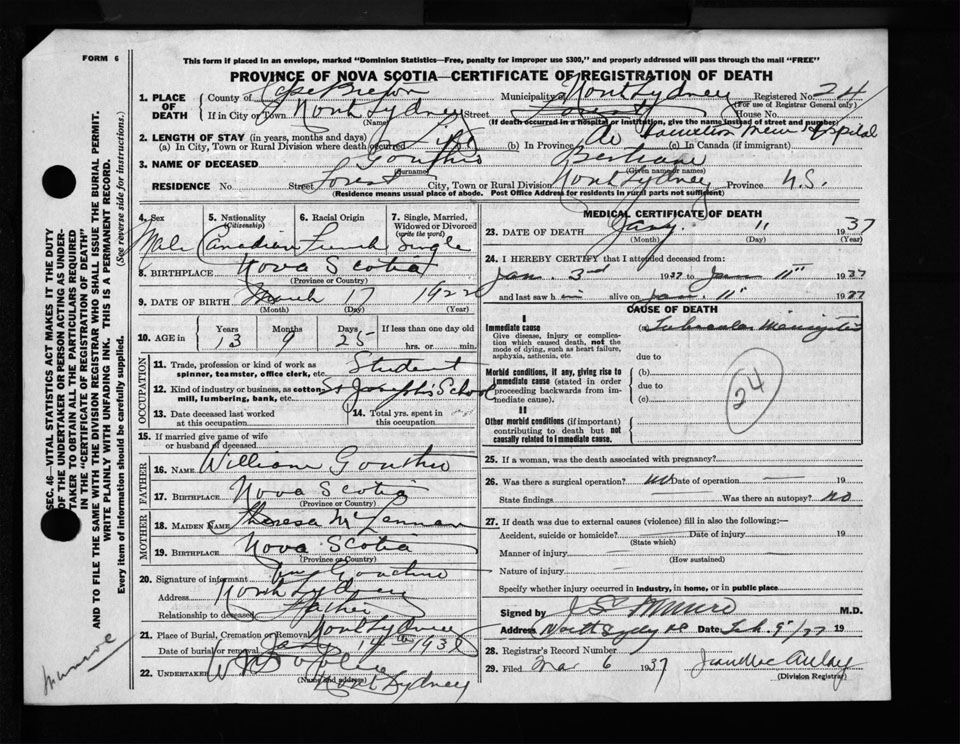 FORM 6
This form if placed in an envelope, marked "Dominion Statistics—Free, penalty for improper use $300," and properly addressed will pass through the mail "FREE"
PROVINCE OF NOVA SCOTIA—CERTIFICATE OF REGISTRATION OF DEATH
1. PLACE OF DEATH County of Cape Breton Municipality of North Sydney Registered No. 24
(For use of Registrar General only)
If in City or Town North Sydney Street Forest House No.
(Name) (If death occurred in a hospital or institution, give the name instead of street and number)
Hamilton Mem Hospital
2. LENGTH OF STAY (in years, months and days)
(a) In City, Town or Rural Division where death occurred Life (b) In Province do (c) In Canada (if immigrant)
3. NAME OF DECEASED
(Surname) (Given name or names)
RESIDENCE No. Street Forest City, Town or Rural Division North Sydney Province N.S.
(Residence means usual place of abode. Post Office Address for residents in rural parts not sufficient)
4. Sex 5. Nationality 6. Racial Origin 7. Single, Married, Widowed or Divorced
(Citizenship) (write the word)
Male Canadian French Single
8. BIRTHPLACE Nova Scotia
(Province or Country)
9. DATE OF BIRTH March 17 1922
(Month) (Day) (Year)
10. AGE in Years Months Days If less than one day old
13 9 25 hrs. or min.
OCCUPATION
11. Trade, profession or kind of work as spinner, teamster, office clerk, etc. Student
12. Kind of industry or business, as cotton mill, lumbering, bank, etc. St Joseph's School
13. Date deceased last worked at this occupation
14. Total yrs. spent in this occupation
15. If married give name of wife or husband of deceased
FATHER
16. NAME William
17. BIRTHPLACE Nova Scotia
(Province or Country)
MOTHER
18. MAIDEN NAME Theresa McLennan
19. BIRTHPLACE Nova Scotia
(Province or Country)
20. Signature of informant
Address North Sydney
Relationship to deceased Father
21. Place of Burial, Cremation or Removal North Sydney
Date of burial or removal
22. UNDERTAKER
(Name and address)
North Sydney
MEDICAL CERTIFICATE OF DEATH
23. DATE OF DEATH Jany. 11 1937
(Month) (Day) (Year)
24. I HEREBY CERTIFY that I attended deceased from:
Jan. 3rd 1937 to Jan 11th 1937
and last saw him alive on Jan. 11th 1937
CAUSE OF DEATH
I
Immediate cause (a) Tubercular Meningitis
Give disease, injury or complication which caused death, not the mode of dying, such as heart failure, asphyxia, asthenia, etc.
due to
Morbid conditions, if any, giving rise to immediate cause (stated in order proceeding backwards from immediate cause).
(b)
due to
(c)
24
II
Other morbid conditions (if important) contributing to death but not causally related to immediate cause.
25. If a woman, was the death associated with pregnancy?
26. Was there a surgical operation? no Date of operation 19
State findings Was there an autopsy? no
27. If death was due to external causes (violence) fill in also the following:—
Accident, suicide or homicide? Date of injury 19
(State which)
Manner of injury
(How sustained)
Nature of injury
Specify whether injury occurred in industry, in home, or in public place
Signed by Munro M.D.
Address North Sydney Date Feb. 9/37 19
28. Registrar's Record Number
29. Filed Mar 6 1937
(Division Registrar)
SEC. 46—VITAL STATISTICS ACT MAKES IT THE DUTY OF THE UNDERTAKER OR PERSON ACTING AS UNDERTAKER TO OBTAIN ALL THE PARTICULARS REQUIRED IN THE "CERTIFICATE OF REGISTRATION OF DEATH"
AND TO FILE THE SAME WITH THE DIVISION REGISTRAR WHO SHALL ISSUE THE BURIAL PERMIT.
WRITE PLAINLY WITH UNFADING INK. THIS IS A PERMANENT RECORD.
Every item of information should be carefully supplied. (See reverse side for instructions.)